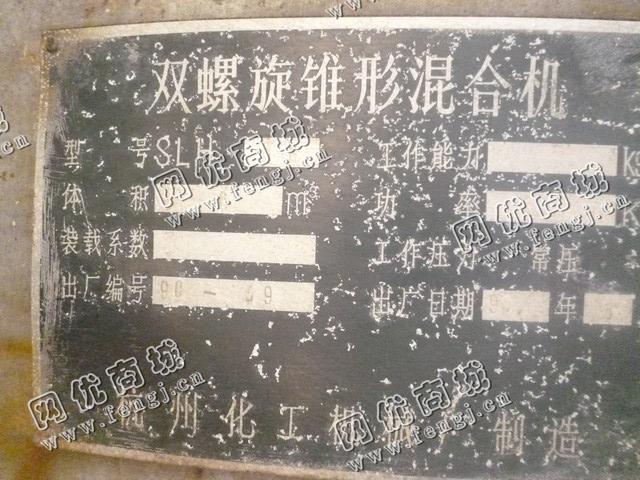 双螺旋锥形混合机
型 号 SLH 工作能力 K
体 积 m³ 功 率
装载系数 工作压力 常压
出厂编号 90-49 出厂日期 年
州化工机 制造
网优商城
www.fengj.cn
网优商城
www.fengj.cn
网优商城
www.fengj.cn
网优商城
www.fengj.cn
网优商城
www.fengj.cn
网优商城
www.fengj.cn